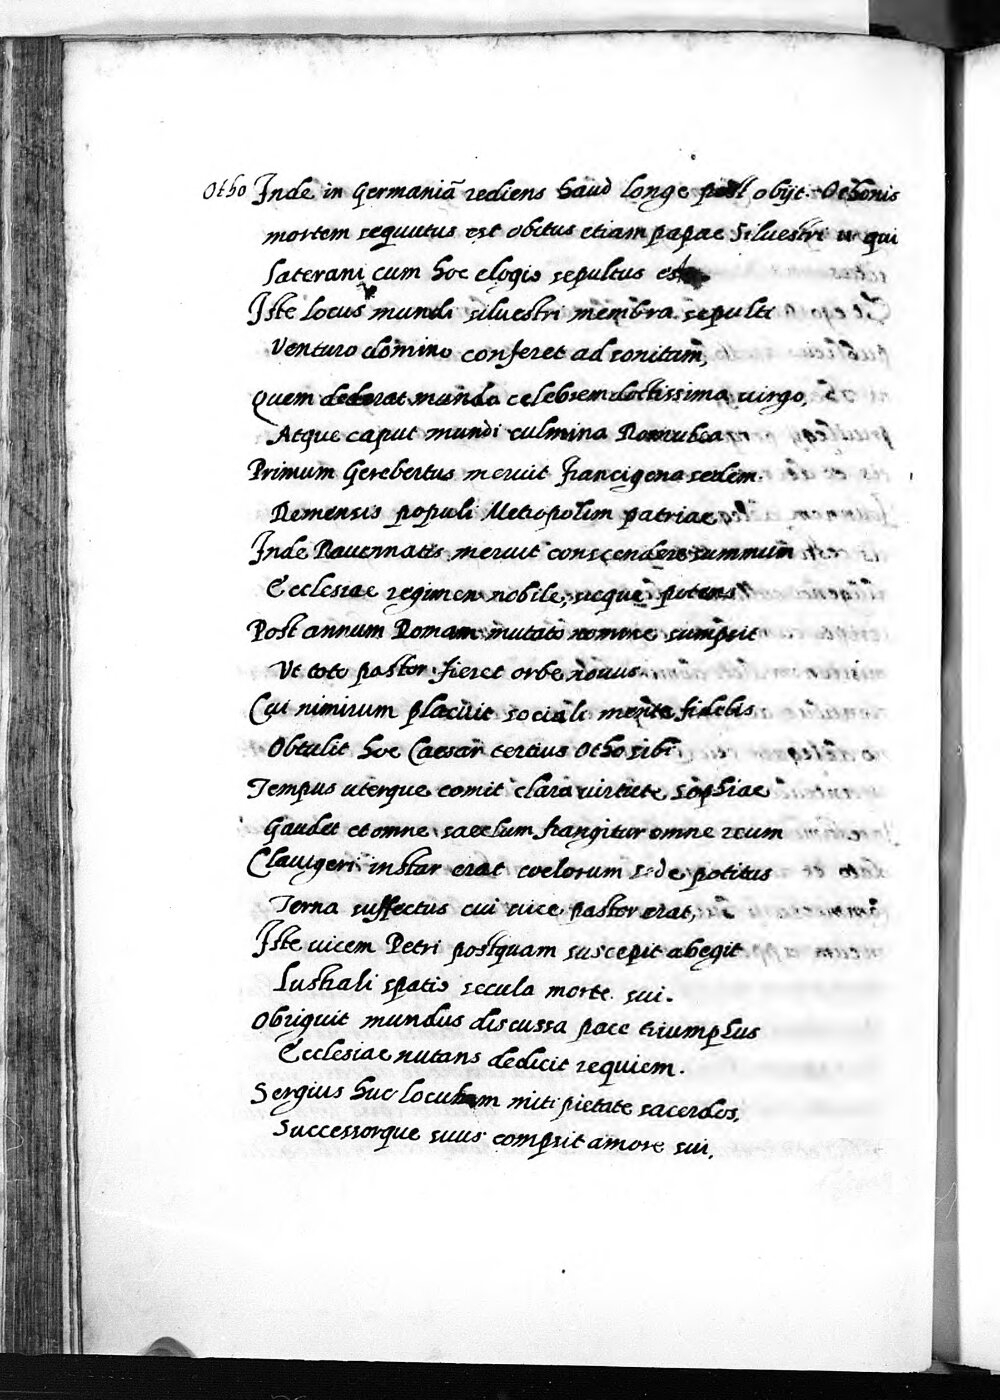 Otho Inde in Germaniā rediens haud longe post obijt. Othonis
mortem sequutus est obitus etiam papae Siluestri ij qui
laterani cum hoc elogio sepultus est
Iste locus mundi siluestri membra sepulti
Venturo domino conferet ad sonitam,
Quem dederat mundo celebrem doctissima uirgo,
Atque caput mundi culmina Romulea
Primum Gerebertus meruit francigena sedem.
Remensis populi Metropolim patriae
Inde Rauennatis meruit conscendere summum
Ecclesiae regimen nobile, neque potens
Post annum Romam mutato nomine sumpsit
Vt toto pastor fieret orbe nouus
Cui nimirum placuit sociali mente fidelis
Obtulit hoc Caesar tertius Otho sibi
Tempus uterque comit clara uirtute sophiae
Gaudet et omne saeclum frangitur omne reum
Clauigeri instar erat coelorum sede potitus
Terna suffectus cui uice pastor erat,
Iste uicem Petri postquam suscepit abegit
Lustrali spatio secula morte sui.
Obriguit mundus discussa pace triumphus
Ecclesiae nutans dedicit requiem.
Sergius huc loculum miti pietate sacerdos,
Successorque suus compsit amore sui,